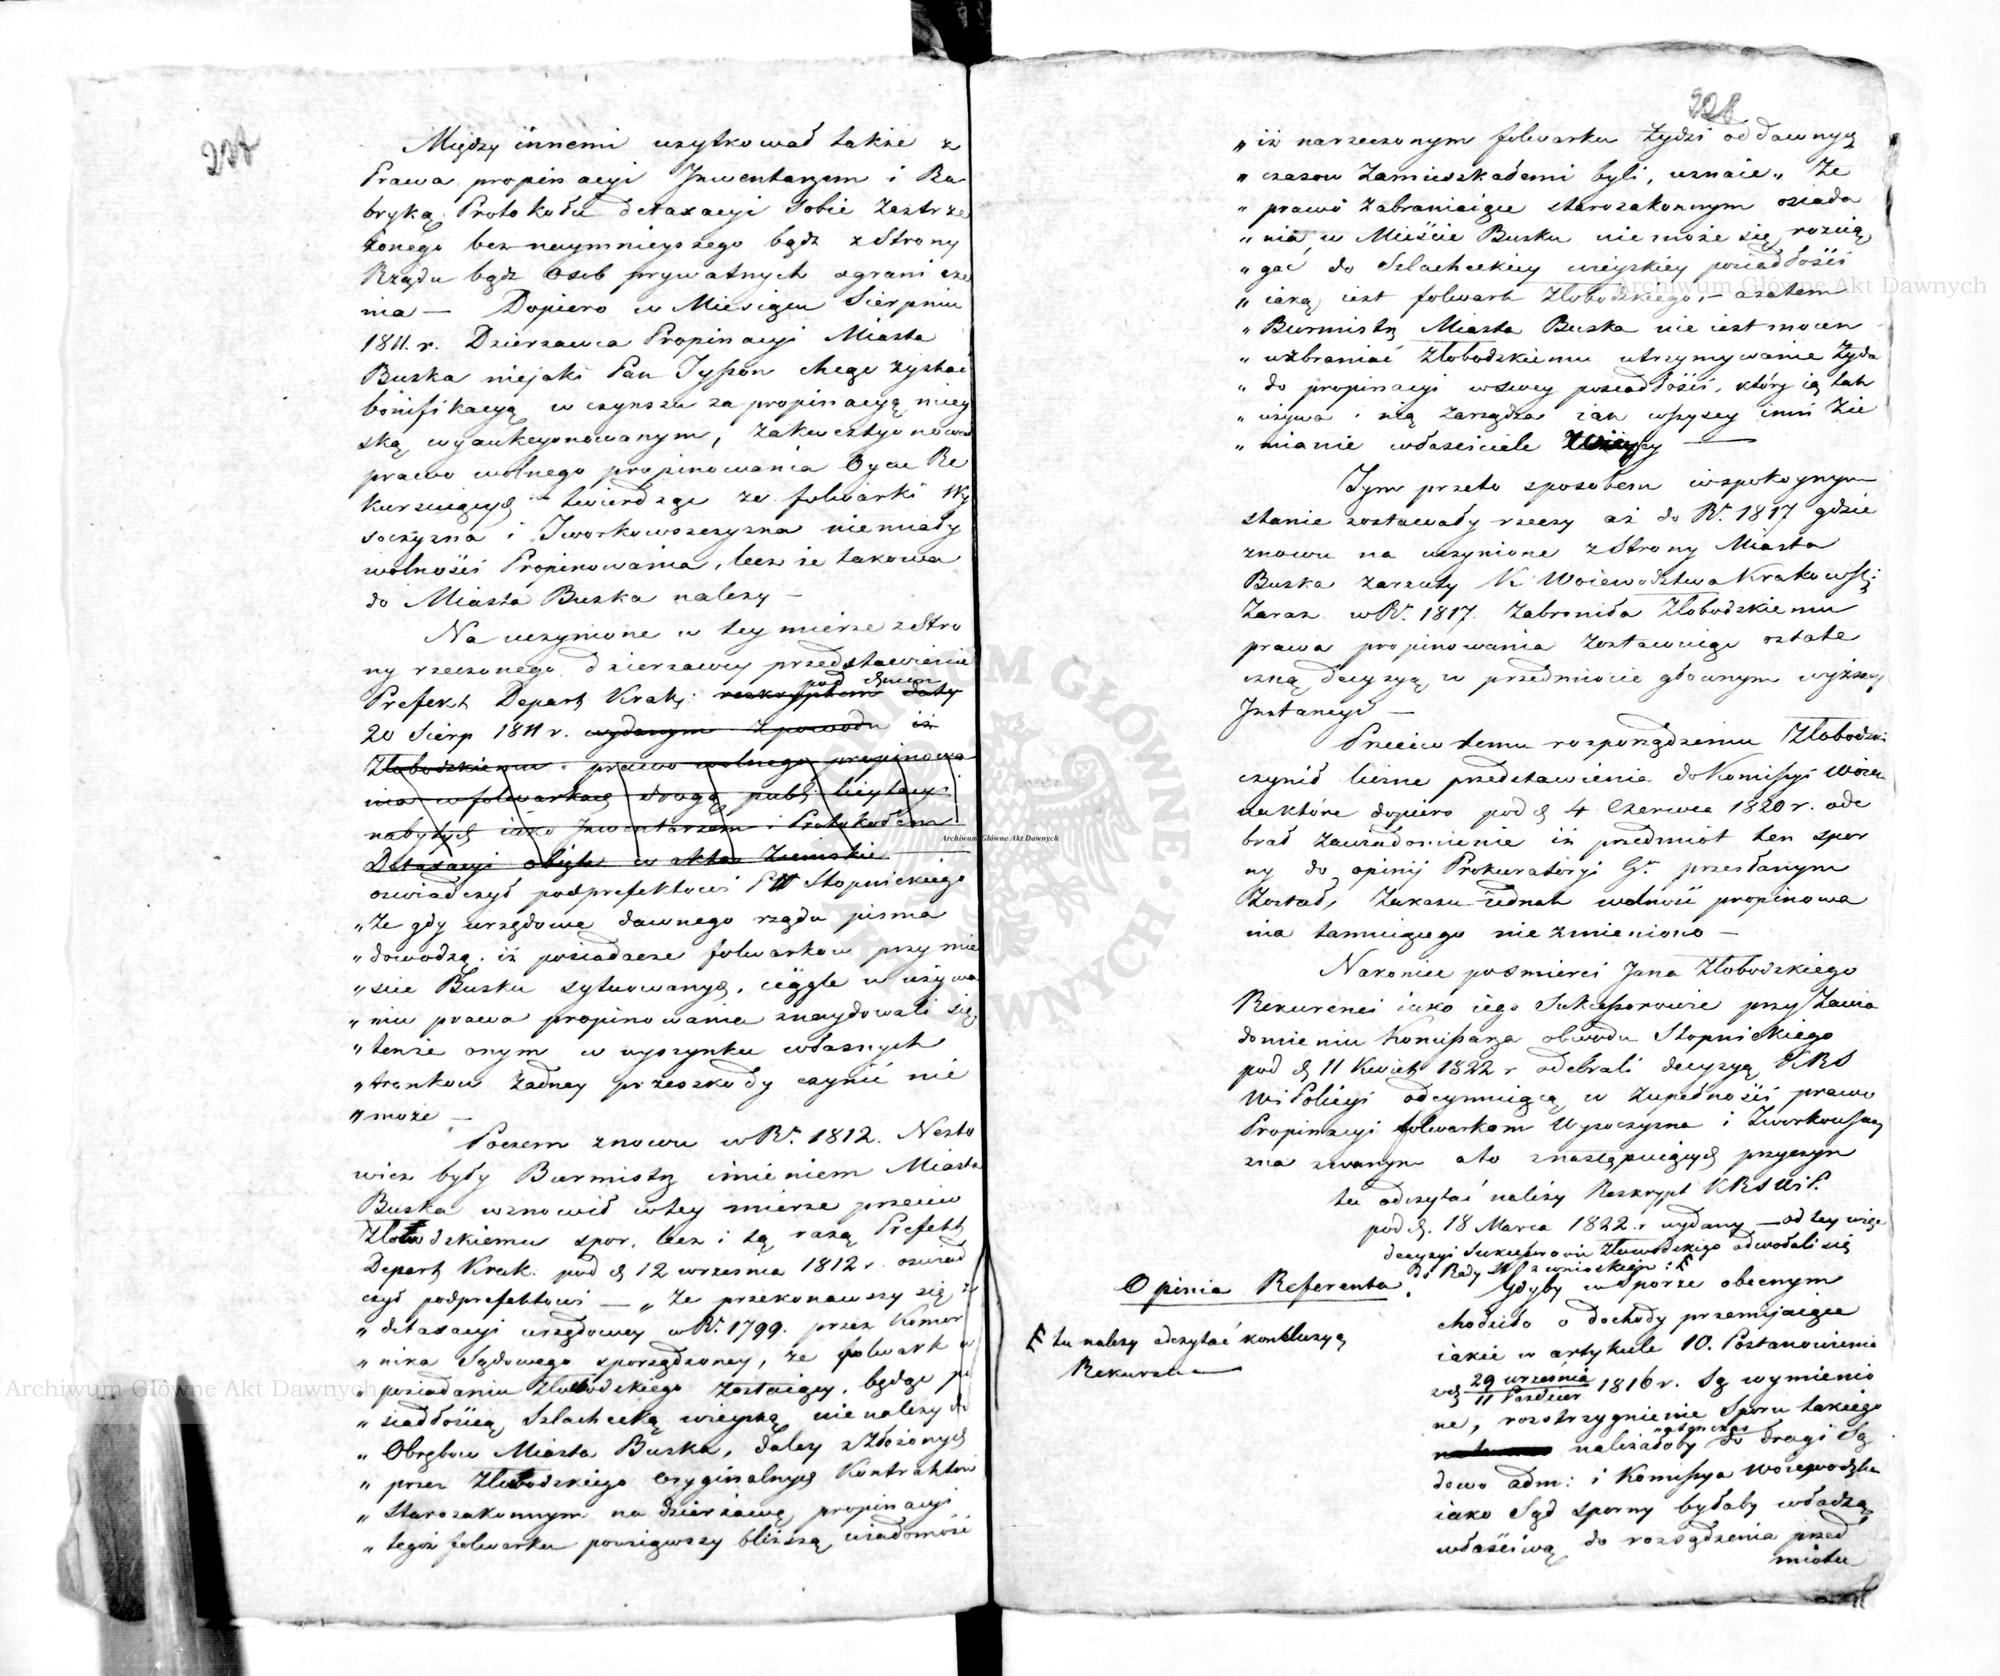 Między innemi uzytkował także z
Prawa propinacyi Inwentarzem i Ru
bryką Protokołu detaxacyi sobie zastrze
żonego bez naymnieyszego bądz z Strony
Rządu bądz Osob prywatnych ograni cze
nia — Dopiero w Miesiącu Sierpniu
1811. r. Dzierzawca Propinacyi Miasta
Buska niejaki Pan chcąc zyskać
bonifikacyą w czynszu za propinacyą miey
ską wyaukcyonowanym, zakwestyonował
prawo wolnego propinowania Oyca Re
kurruiących twierdząc ze folwarki Wy
soczyzna i Tworkowszczyzna niemiały
wolności Propinowania, lecz że takowa
do Miasta Buska nalezy —
Na uczynione w tey mierze z Stro
ny rzeczonego dzierzawcy przedstawienie
pod dniem
Prefekt Depart Krak: reskryptem daty
20 Sierp 1811 r. wydanym z powodu iż
Złobodzkiemu prawo wolnego propinowa
nia w folwarkach drogą publ licytacyi
nabytych iako Inwentarzem i Protokołem
Detaxacyi obięte w akta Ziemskie
oswiadczył podprefektowi Stopnickiego
„że gdy urzędowe dawnego rządu pisma
„dowodzą iż posiadacze folwarkow przy mie
„scie Busku sytuowanych, ciągle w używa
„niu prawa propinowania znaydowali się
„tenże onym w wyszynku własnych
„trunkow żadney przeszkody czynić nie
„może —
Poczem znowu w R. 1812. Nesto
wicz były Burmistrz imieniem Miasta
Buska wznowił w tey mierze przeciw
Złobodzkiemu spor, lecz i tą razą Prefekt
Depart Krak: pod d 12 września 1812 r. oswiad
czył podprefektowi — „że przekonawszy się z
„detaxacyi urzędowey w R. 1799. przez Komor
„nika Sądowego sporządzoney, że folwark w
„posiadaniu Złobodzkiego zostaiący, będąc po
„siadłością Szlachecką wieyską nie nalezy do
„Obrębow Miasta Buska, daley z złożonych
„przez Złobodzkiego oryginalnych Kontraktow
„starozakonnym na dzierżawę propinacyi
„tegoż folwarku powziąwszy bliższą wiadomość
„iż na rzeczonym folwarku Żydzi od dawnych
„czasow zamieszkałemi byli, uznaie „że
„prawo zabraniaiące starozakonnym osiada
„nia w Mieście Busku nie może się rozcią
„gać do Szlacheckiey wieyskiey posiadłości
„iaką iest folwark Złobodzkiego, — a zatem
„Burmistrz Miasta Buska nie iest mocen
„wzbraniać Złobodzkiemu utrzymywanie Żyda
„do propinacyi w swey posiadłości, który ią tak
„używa i nią zarządza iak wszyscy inni Zie
„mianie właściciele —
Tym przeto sposobem w spokoynym
stanie zostawały rzeczy aż do R. 1817 gdzie
znowu na uczynione z Strony Miasta
Buska zarzuty K Woiewodztwa Krakowsk:
zaraz w R. 1817. zabroniła Złobodzkiemu
prawa propinowania zostawuiąc ostate
czną decyzyą w przedmiocie głownym wyższey
Instancyi —
Przeciw temu rozporządzeniu Złobodzki
czynił liczne przedstawienia do Komissyi Woiew
na które dopiero pod d 4 Czerwca 1820 r. ode
brał zawiadomienie iż przedmiot ten spor
ny do opinij Prokuratoryi G. przesłanym
został, zakazu iednak wolność propinowa
nia tamuiącego nie zmieniono —
Nakoniec po smierci Jana Złobodzkiego
Rekurenci iako iego Sukcessorowie przy zawia
domieniu Komissarza obwodu Stopnickiego
pod d 11 Kwiet 1822 r odebrali decyzyą KRS
W i Policyi odeymuiącą w zupełności prawo
Propinacyi folwarkom Wysoczyzna i Tworkowszczy
zna zwanym a to z następuiących przyczyn
tu odczytać należy Reskrypt KRSWiP.
pod d. 18 Marca 1822 r wydany — od tey więc
decyzyi Sukcessorowie Złobodzkiego odwołali się
do Rady z wnioskiem:
Opinia Referenta. Gdyby w sporze obecnym
chodziło o dochody przemijaiące
iakie w artykule 10. Postanowienia
z d 29 września / 11 Paździer 1816 r. Są wymienio
ne, rozstrzygnienie Sporu takiego
natenczas
należałoby do drogi Są
dowo adm: i Komissya Woiewodzka
iako Sąd sporny byłaby władzą
właściwą do rozsądzenia przed
miotu
tu nalezy odczytać konkluzyą
Rekursu —